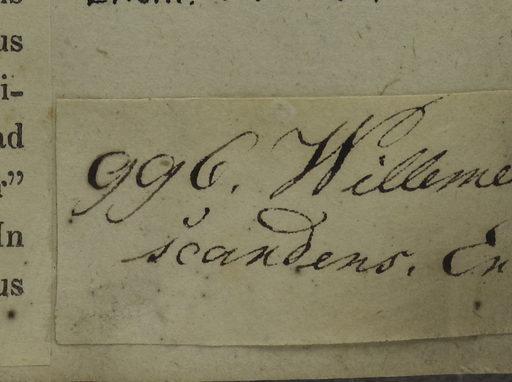 us
i-
ad
”
In
us
996. Willeme
scandens. En